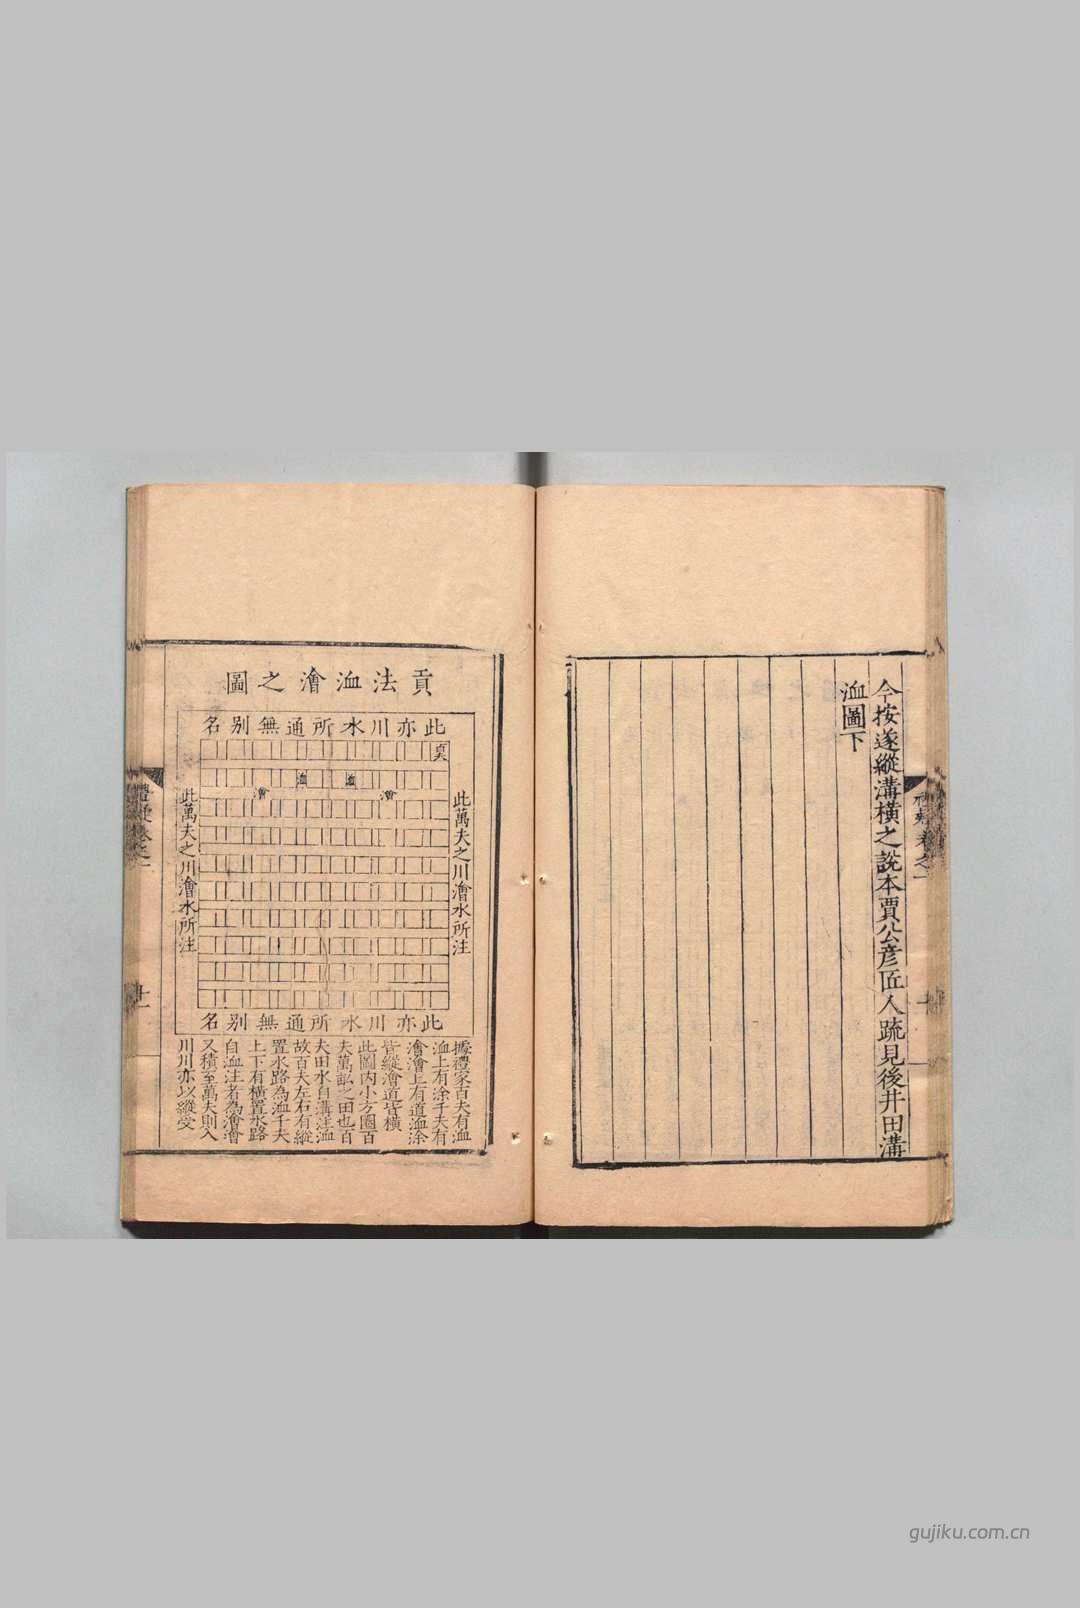 今按遂縱溝橫之說本賈公彥匠人疏見後井田溝
洫圖下
貢法洫澮之圖
此亦川水所通無別名
百夫
洫
洫
澮
澮
此萬夫之川澮水所注
此萬夫之川澮水所注
此亦川水所通無別名
據禮家百夫有洫
洫上有涂千夫有
澮澮上有道洫涂
皆縱澮道皆橫
此圖內小方圈百
夫萬畝之田也百
夫田水自溝注洫
故百夫左右有縱
置水路為洫千夫
上下有橫置水路
自洫注者為澮澮
又積至萬夫則入
川川亦以縱受
禮疑卷之一
十一
gujiku.com.cn